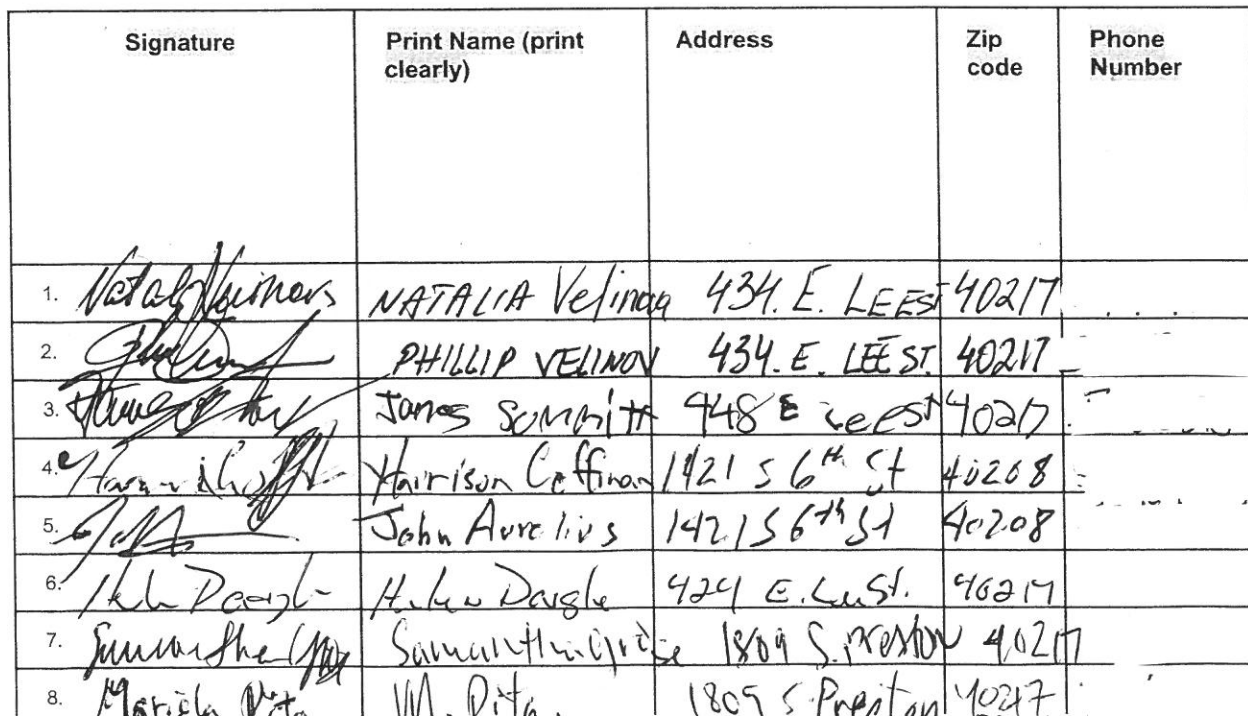 Signature Print Name (print clearly) Address Zip code Phone Number
1. NATALIA Velinova 434. E. LEE ST 40217
2. PHILLIP VELINOV 434. E. LEE ST. 40217
3. James Summitt 448 E Lee ST 40217
4. Harrison Coffman 1421 S 6th St 40208
5. John Aurelius 1421 S 6th St 40208
6. Helen Daigle 424 E. Lee St. 40217
7. Samantha 1809 S. Preston 40217
8. Mariela Pita M. Pita 1809 S. Preston 40217